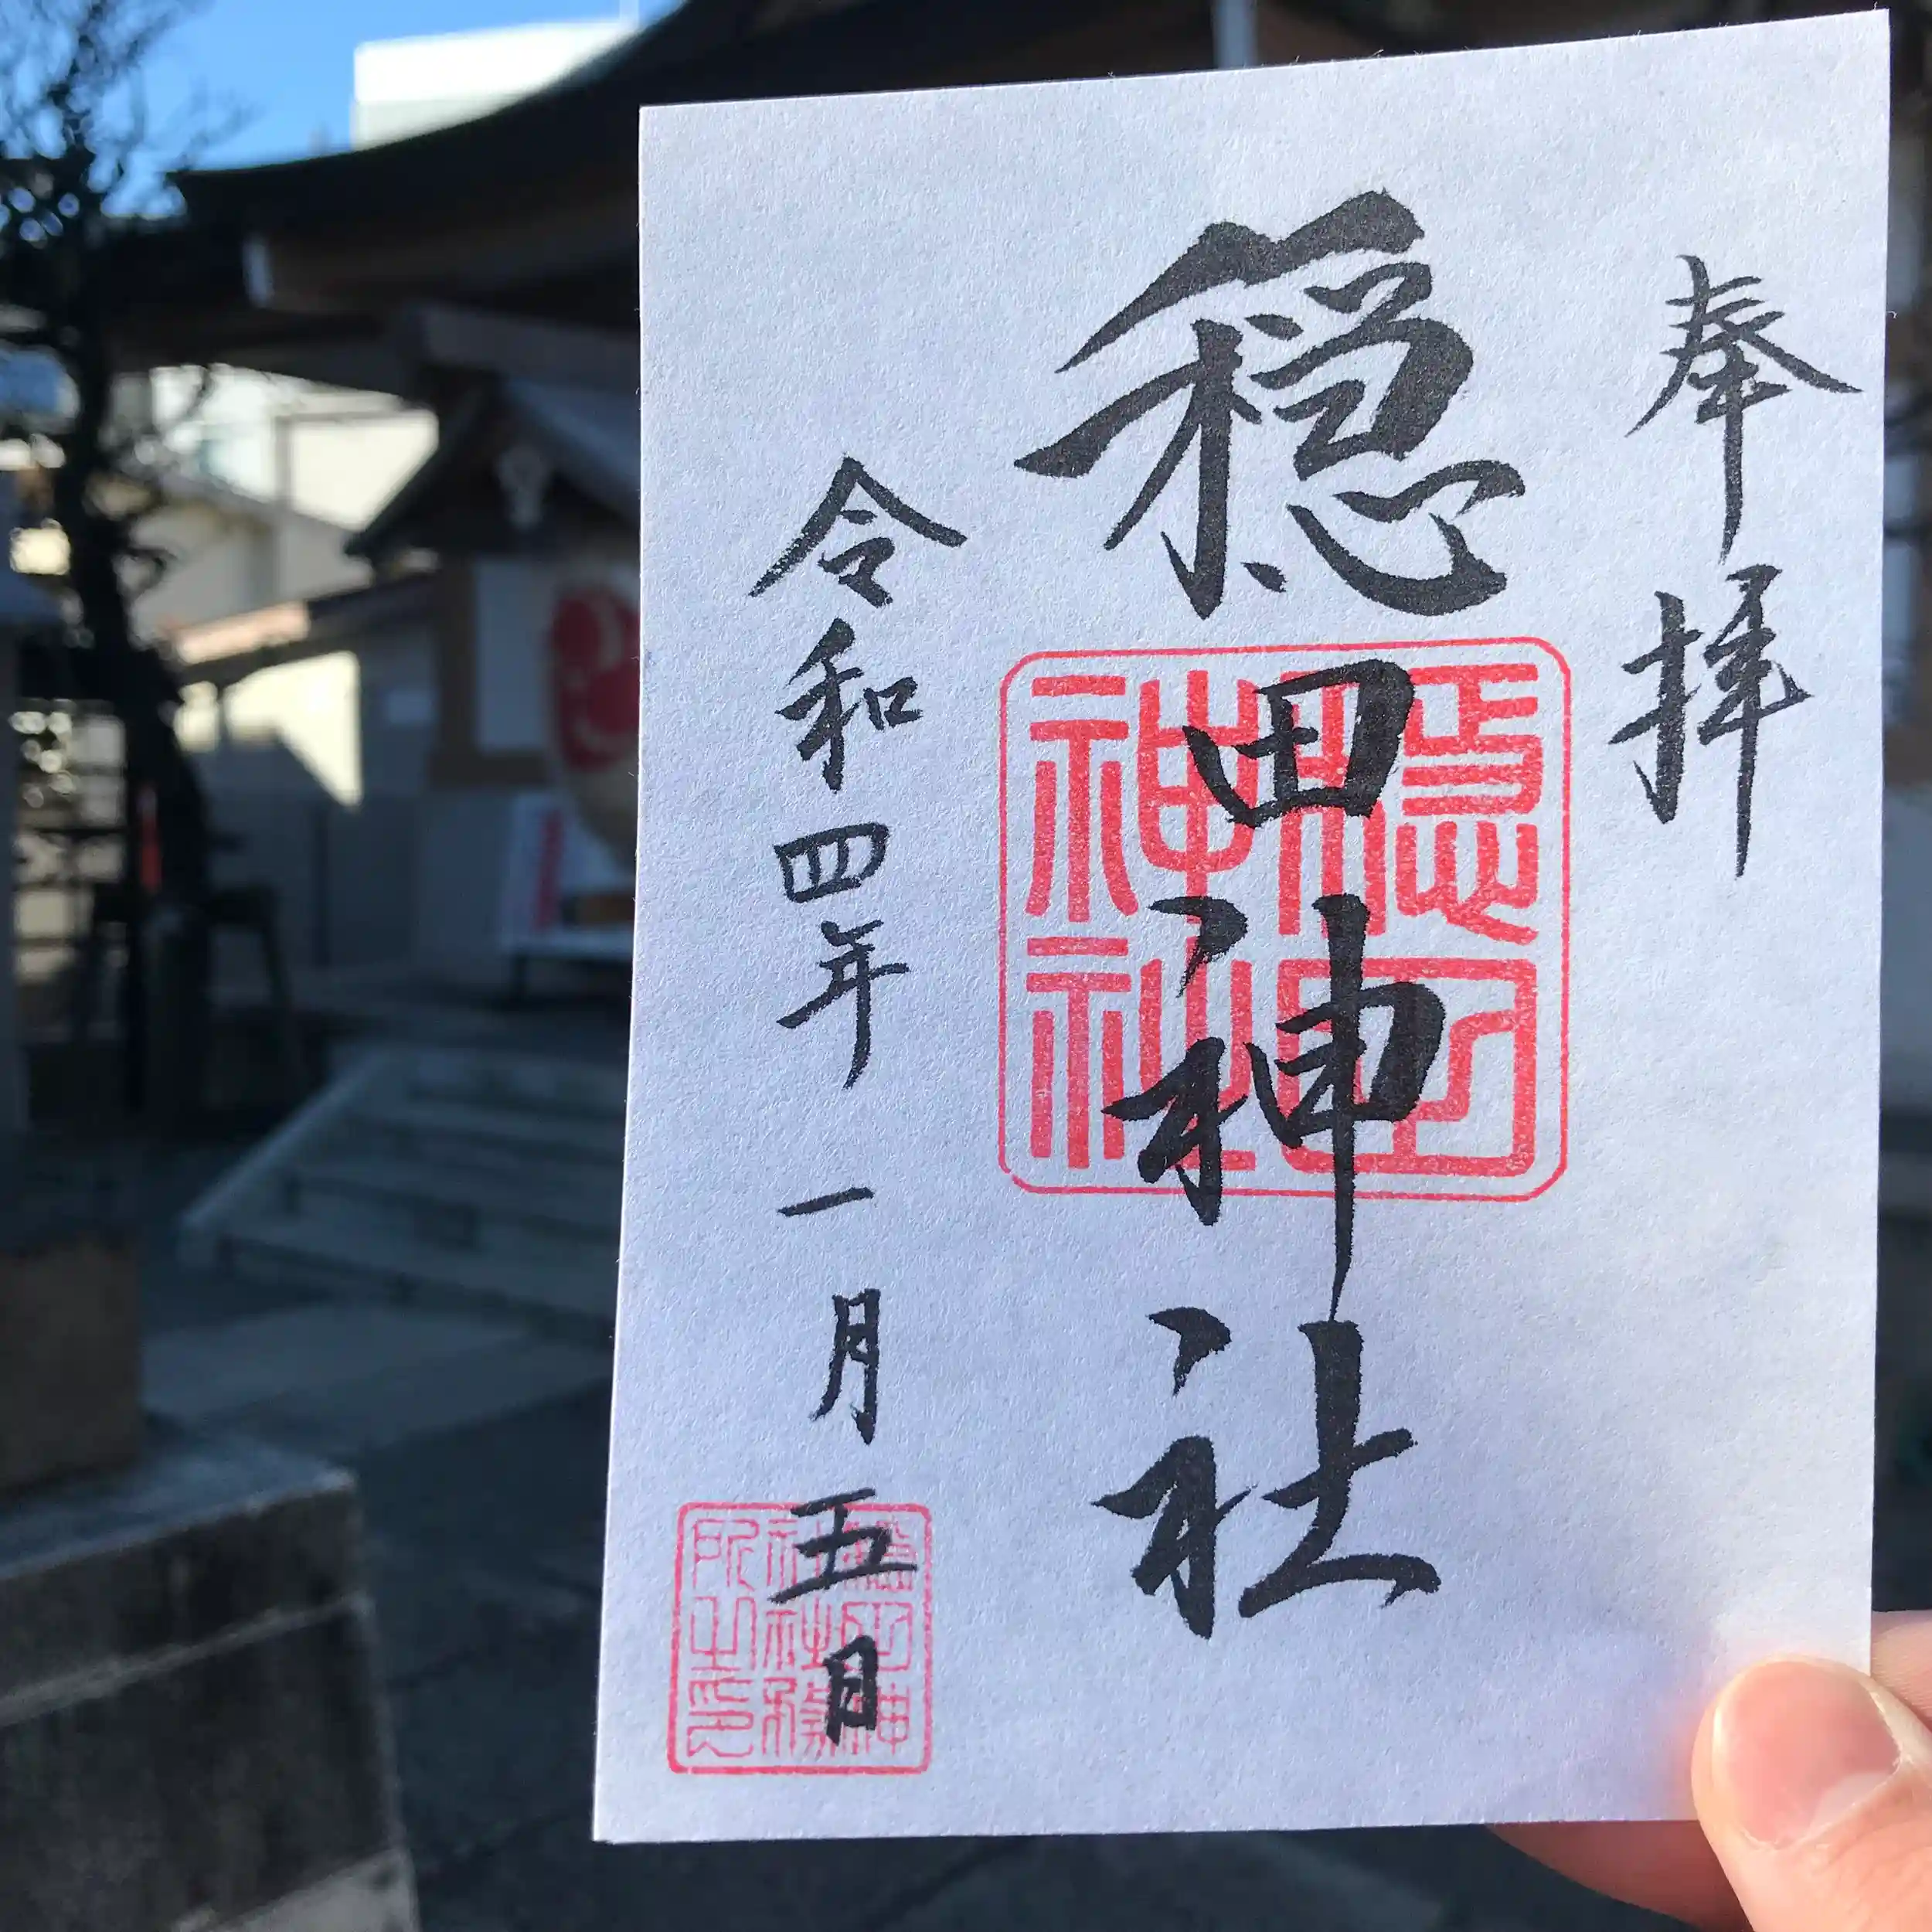 奉拝
穏田神社
令和四年一月五日
穏田神社
穏田神社社務所之印